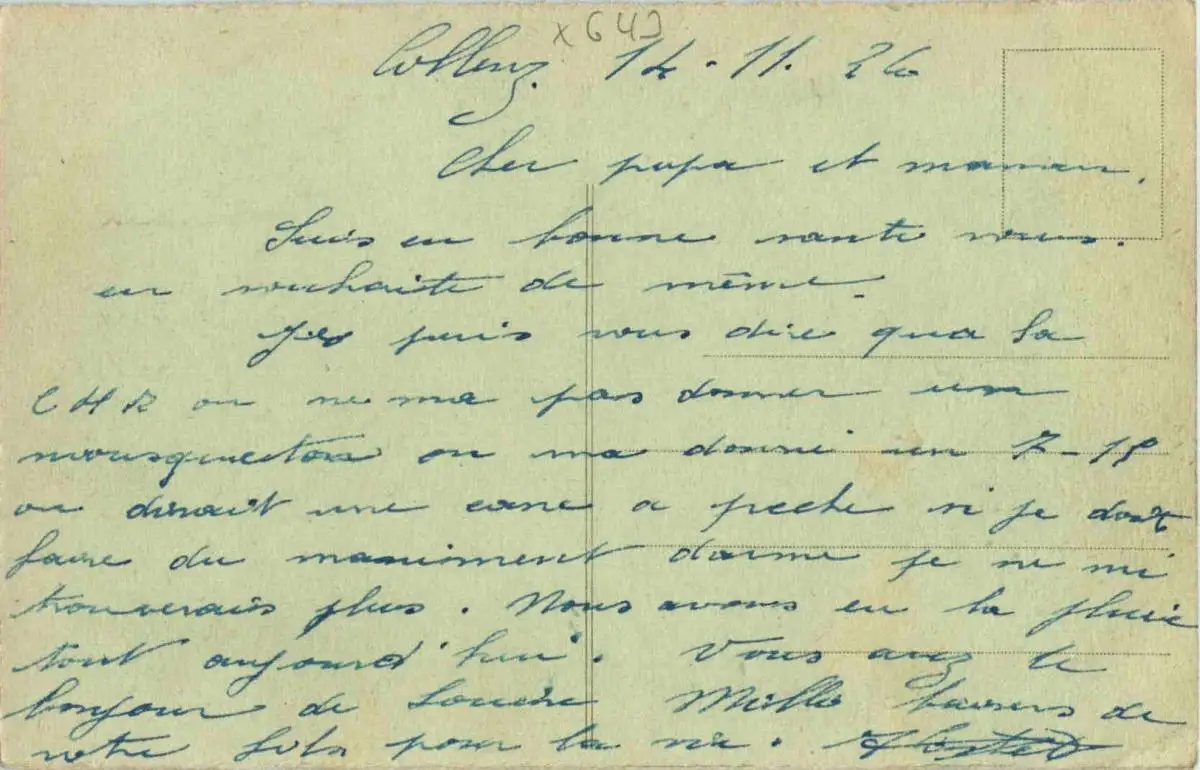 x 642
Coblenz. 14 - 11. 26
Cher papa et maman.
Suis en bonne sante vous.
en souhaite de même.
Je puis vous dire qua la
C H R on ne ma pas donner un
mousqueton on ma donné un 7-15
on dirait une cane a peche si je doit
faire du maniment darme je ne mi
trouverais plus. Nous avons eu la pluie
tout aujourd'hui. Vous avez le
bonjour de Mille baisers de
votre fils pour la vie.